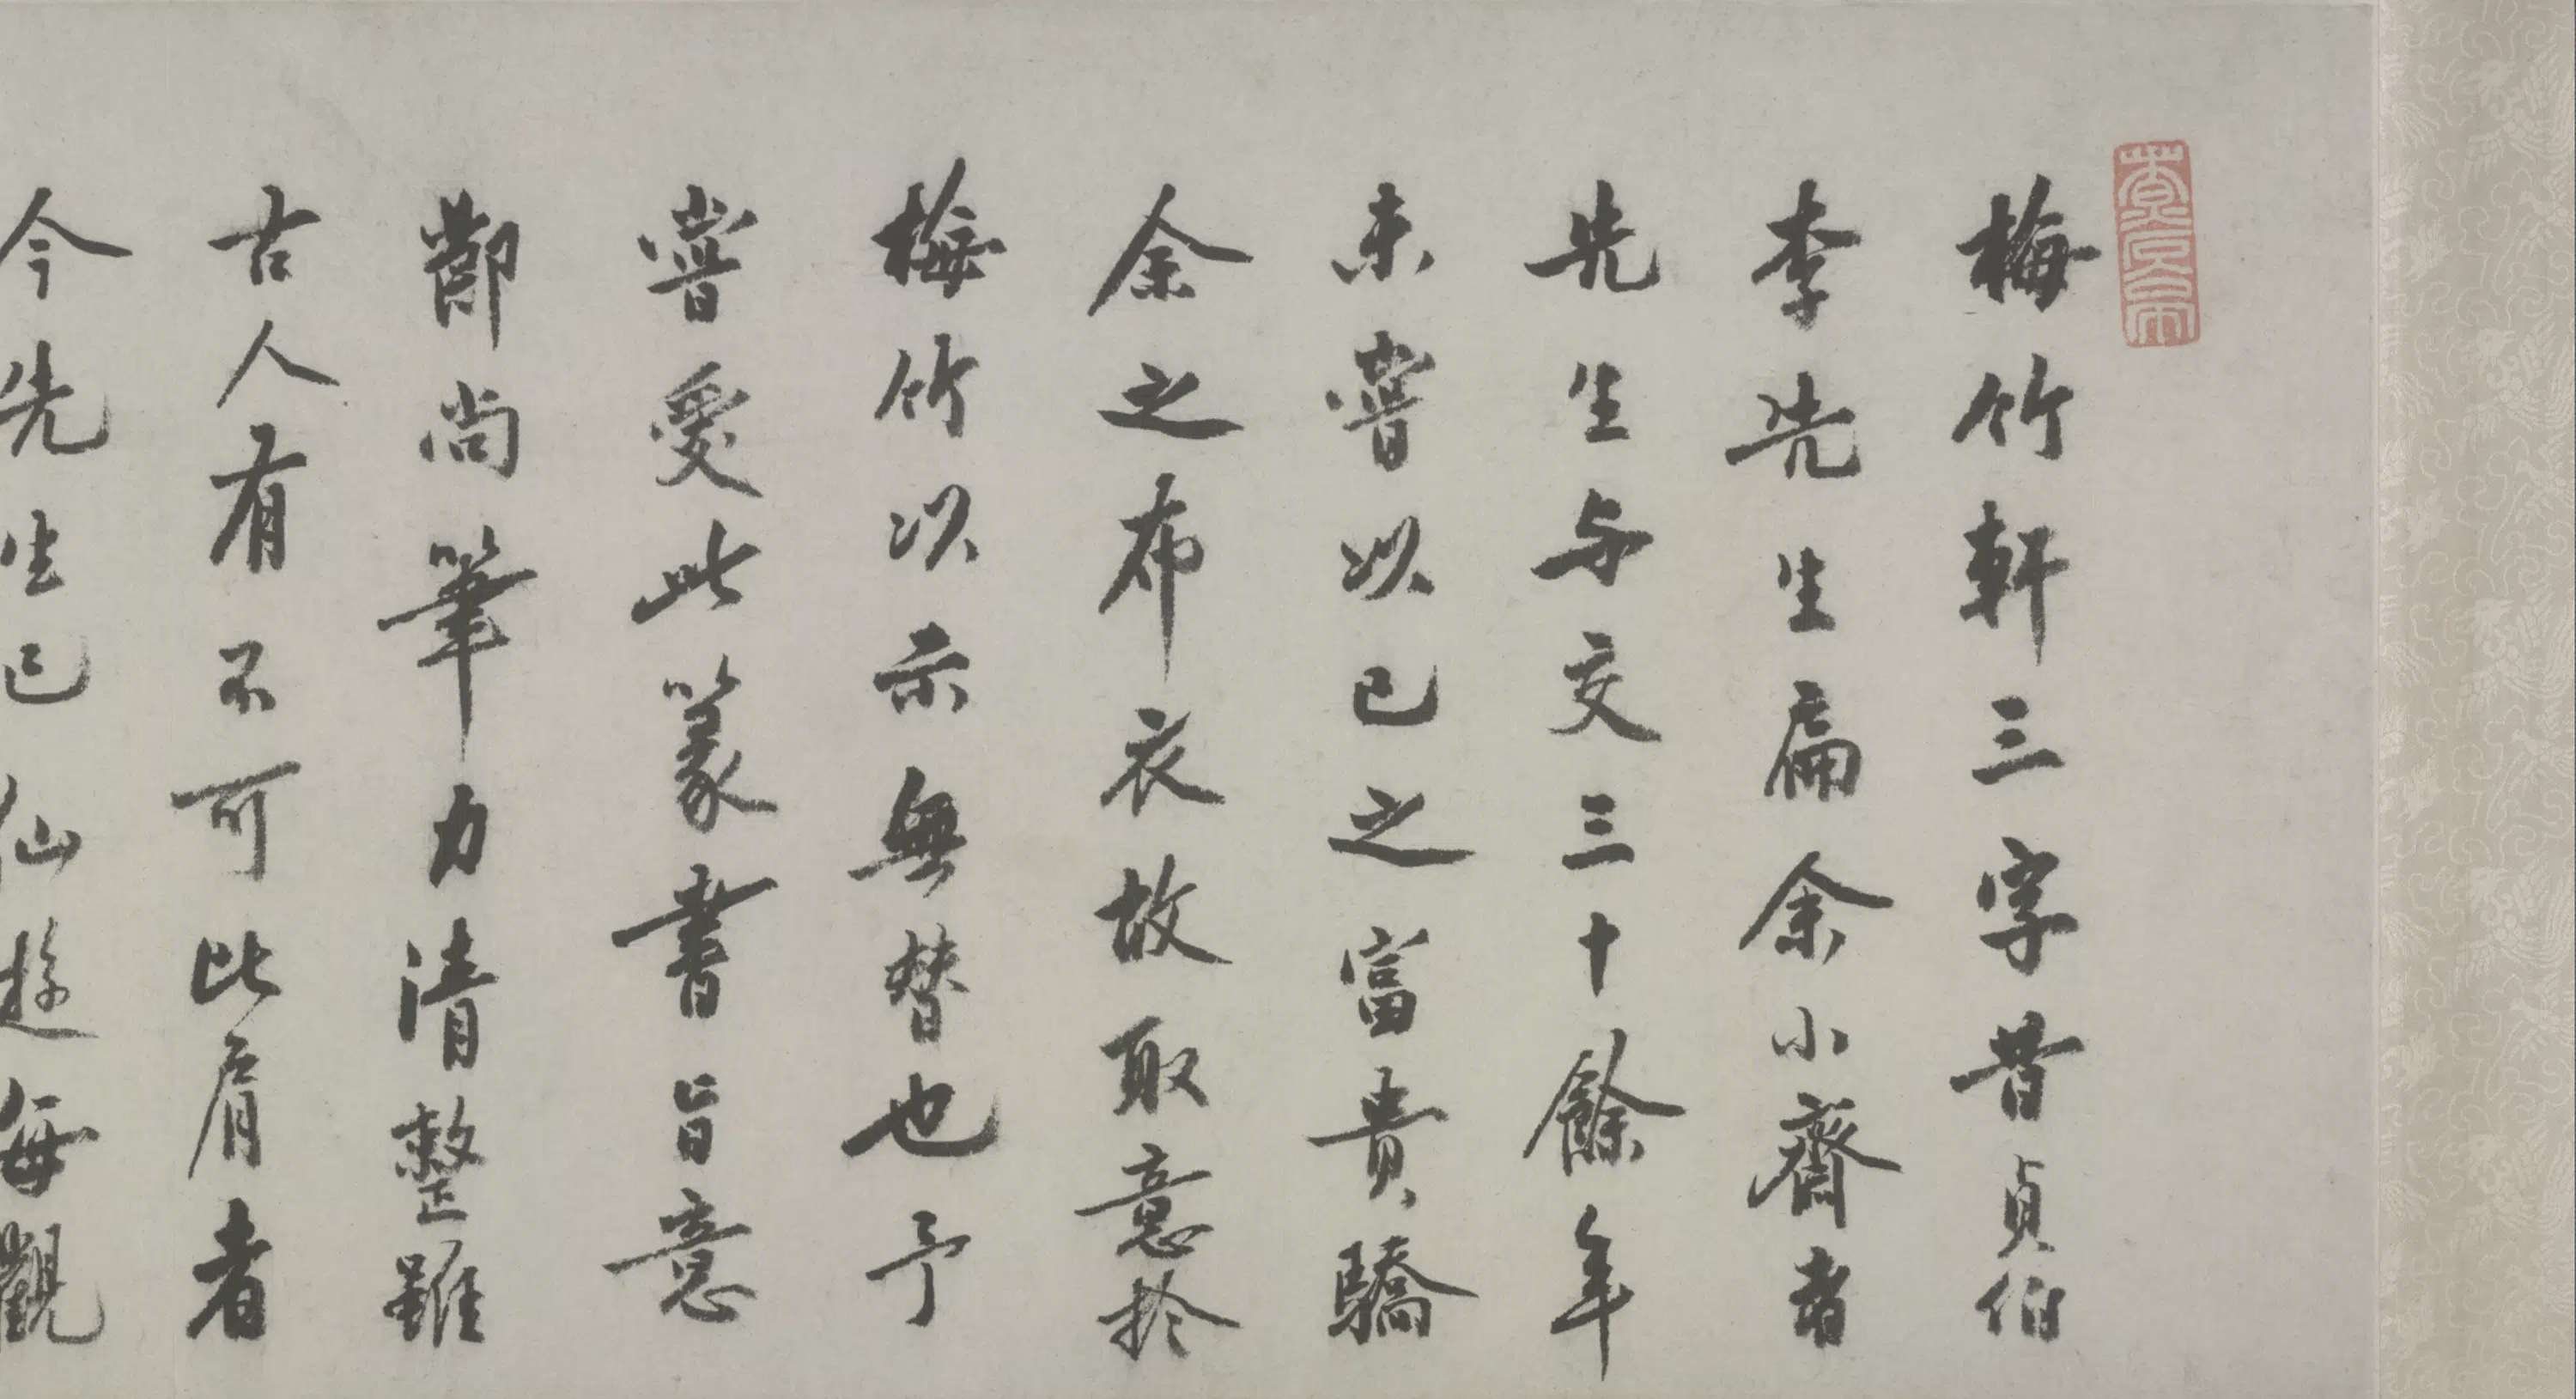 梅竹軒三字昔貞伯
李先生扁余小齋者
先生与交三十餘年
未嘗以己之富貴驕
余之布衣故取意於
梅竹以示無替也予
嘗愛此篆書旨意
鄙尚筆力清整雖
古人有不可比肩者
今先生已仙遊每觀